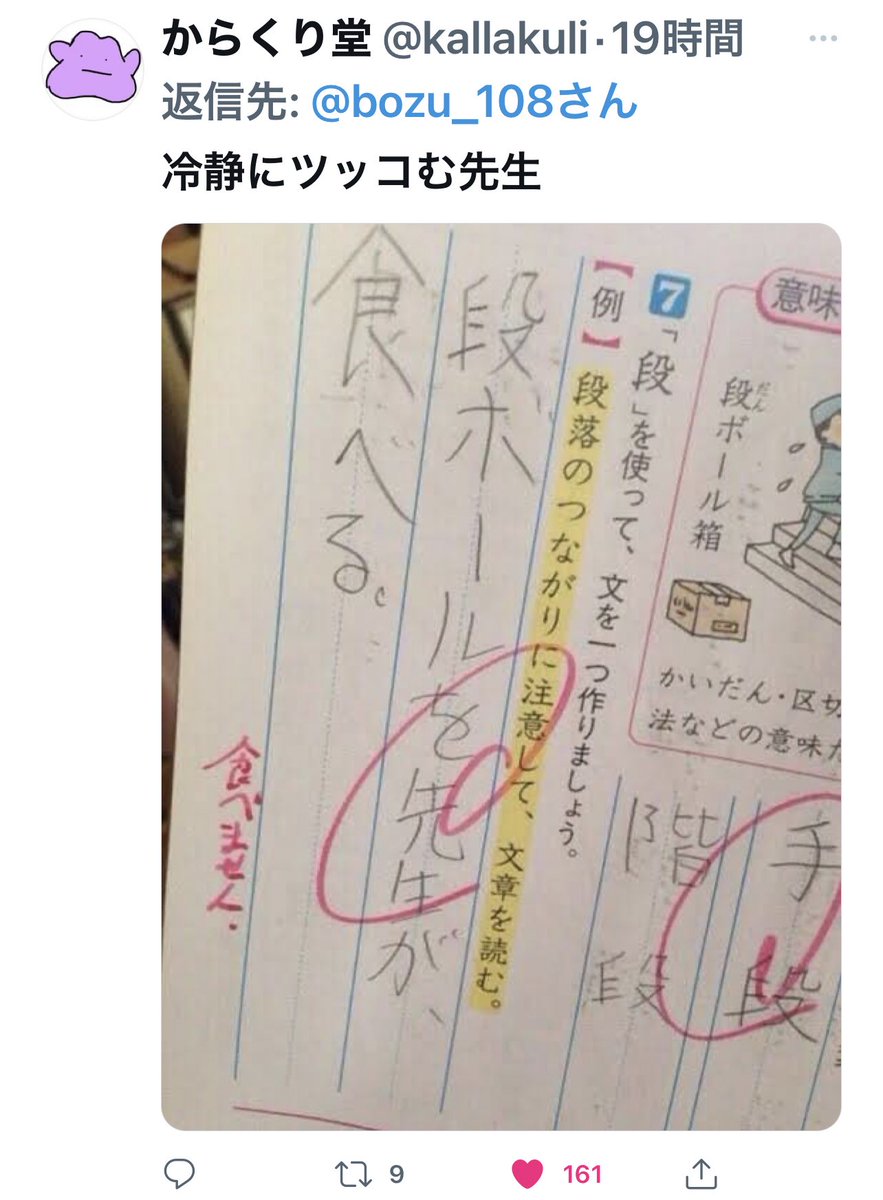 からくり堂 @kallakuli·19時間
返信先: @bozu_108さん
冷静にツッコむ先生
意味
段ボール箱
だん
かいだん・区切
法などの意味
7 「段」を使って、文を一つ作りましょう。
【例】段落のつながりに注意して、文章を読む。
手段
階段
段ボールを先生が、
食べる。
食べません.
9
161